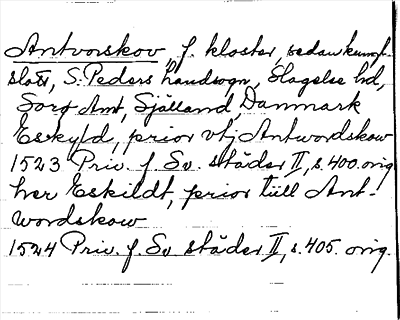 Antvorskov, f. kloster, sedan kungl.
slott, S. Peders landsogn, Slagelse hd,
Sorø Amt, Själland, Danmark
Eskyld, prior vtj Antwordskow
1523 Priv. f. Sv. städer II, s. 400. orig.
her Eskildt, prior tiill Ant-
wordskow
1524 Priv. f. Sv. städer II, s. 405. orig.